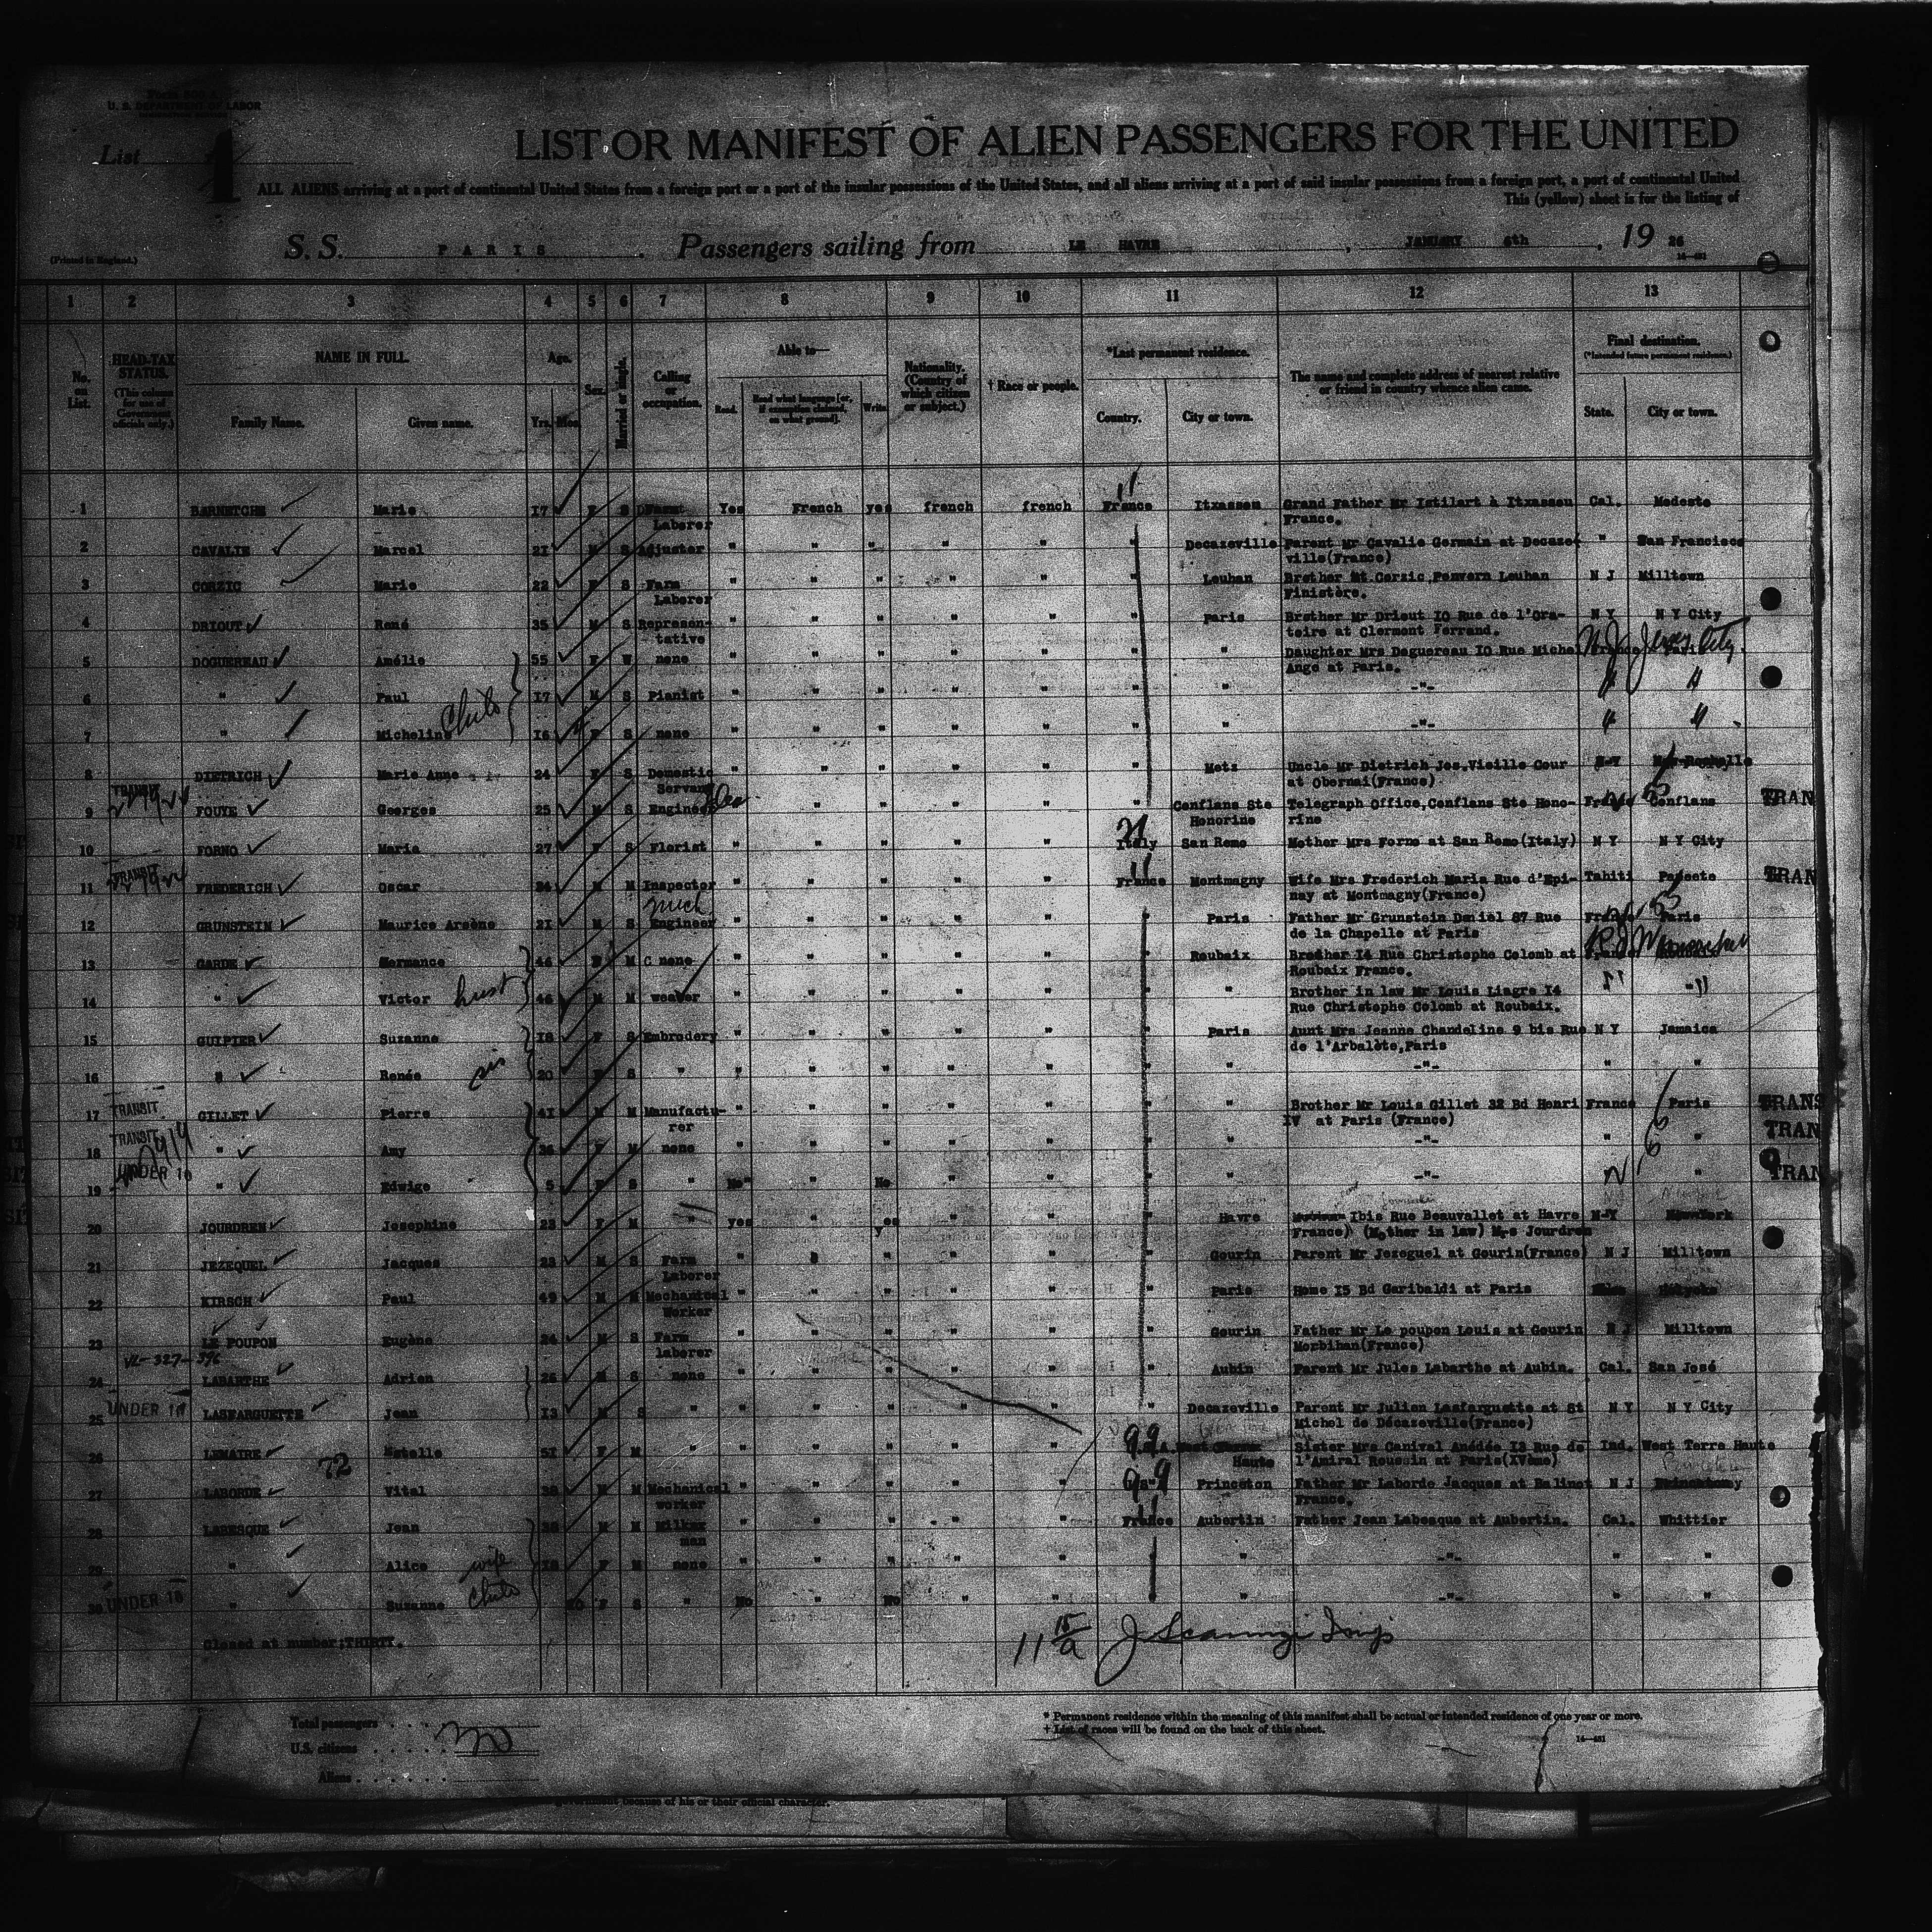 U. S. DEPARTMENT OF LABOR
List
LIST OR MANIFEST OF ALIEN PASSENGERS FOR THE UNITED
ALL ALIENS arriving at a port of continental United States from a foreign port or a port of the insular possessions of the United States, and all aliens arriving at a port of said insular possessions from a foreign port, a port of continental United
This (yellow) sheet is for the listing of
(Printed in England.)
S. S. PARIS. Passengers sailing from LE HAVRE, JANUARY 6th, 19 26
1 2 3 4 5 6 7 8 9 10 11 12 13
No. on List.
HEAD-TAX STATUS. (This column for use of Government officials only.)
NAME IN FULL. Family Name. Given name.
Age. Yrs. Mos.
Sex.
Married or single.
Calling or occupation.
Able to— Read. Read what language [or, if exemption claimed, on what ground]. Write.
Nationality. (Country of which citizen or subject.)
† Race or people.
*Last permanent residence. Country. City or town.
The name and complete address of nearest relative or friend in country whence alien came.
Final destination. (*Intended future permanent residence.) State. City or town.
1 BARNETCHE Marie 17 F S Laborer Yes French yes french french France Itxassou Grand Father Mr Istilart à Itxassou France. Cal. Modesto
2 CAVALIE Marcel 21 M S Adjuster " " " " " " Decazeville Parent Mr Cavalie Germain at Decazeville(France) " San Francisco
3 CORZIC Marie 22 F S Farm Laborer " " " " " " Leuhan Brother Mr Corzic Penvern Leuhan Finistère. N J Milltown
4 DRIOUT René 35 M S Representative " " " " " " Paris Brother Mr Driout 10 Rue de l'Oratoire at Clermont Ferrand. N Y N Y City
5 DOGUEREAU Amélie 55 F W none " " " " " " " Daughter Mrs Doguereau 10 Rue Michel Ange at Paris. N J Jersey City
6 " Paul 17 M S Pianist " " " " " " " -"- " "
7 " Micheline Child 16 F S none " " " " " " " -"- " "
8 DIETRICH Marie Anne 24 F S Domestic Servant " " " " " " Metz Uncle Mr Dietrich Jos.Vieille Cour at Obernai(France) N-Y New-Rochelle
9 TRANSIT FOUYE Georges 25 M S Engineer " " " " " " Conflans Ste Honorine Telegraph Office,Conflans Ste Honorine France Conflans TRAN
10 FORNO Maria 27 F S Florist " " " " " Italy San Remo Mother Mrs Forno at San Remo(Italy) N Y N Y City
11 TRANSIT FREDERICH Oscar 34 M M Inspector " " " " " France Montmagny Wife Mrs Frederich Maria Rue d'Epinay at Montmagny(France) Tahiti Papeete TRAN
12 GRUNSTEIN Maurice Arsène 21 M S Mech Engineer " " " " " " Paris Father Mr Grunstein Daniel 87 Rue de la Chapelle at Paris France Paris
13 GARDE Hermance 46 F M none " " " " " " Roubaix Brother 14 Rue Christophe Colomb at Roubaix France. France Roubaix
14 " Victor hust 46 M M weaver " " " " " " " Brother in law Mr Louis Liagre 14 Rue Christophe Colomb at Roubaix. " "
15 GULPIER Suzanne 18 F S Embrodery " " " " " " Paris Aunt Mrs Jeanne Chandeline 9 bis Rue de l'Arbalète,Paris N Y Jamaica
16 " Renée sis 20 F S " " " " " " " " -"- " "
17 TRANSIT GILLET Pierre 41 M M Manufacturer " " " " " " " Brother Mr Louis Gillet 32 Bd Henri IV at Paris (France) France Paris TRANS
18 TRANSIT " Amy 36 F M none " " " " " " " -"- " " TRAN
19 UNDER 16 " Edwige 5 F S " No " No " " " " -"- " TRAN
20 JOURDREN Josephine 23 F M " yes " yes " " " Havre Ibis Rue Beauvallet at Havre France) (Mother in law) Mrs Jourdren N-Y NewYork
21 JEZEQUEL Jacques 23 M S Farm Laborer " " " " " " Gourin Parent Mr Jezeguel at Gourin(France) N J Milltown
22 KIRSCH Paul 49 M M Mechanical Worker " " " " " " Paris Home 15 Bd Garibaldi at Paris
23 LE POUPON Eugène 24 M S Farm laborer " " " " " " Gourin Father Mr Le poupon Louis at Gourin Morbihan(France) N J Milltown
24 LABARTHE Adrien 26 M S none " " " " " " Aubin Parent Mr Jules Labarthe at Aubin. Cal. San José
25 UNDER 16 LASFARGUETTE Jean 13 M S " " " " " " " Decazeville Parent Mr Julien Lasfarguette at St Michel de Décazeville(France) N Y N Y City
26 LEMAIRE Estelle 51 F M " " " " " " Haute Sister Mrs Canival Anédée 13 Rue de l'Amiral Roussin at Paris(XVème) Ind. West Terre Haute
72
27 LABORDE Vital 38 M M Mechanical worker " " " " " Princeton Father Mr Laborde Jacques at Balinot France. N J
28 LABESQUE Jean M M Milkman " " " " " France Aubertin Father Jean Labesque at Aubertin. Cal. Whittier
29 " Alice wife F M none " " " " " " -"- " "
30 UNDER 16 " Suzanne Child F S " No " No " " " -"- " "
Closed at number:THIRTY.
Total passengers
U.S. citizens
Aliens
* Permanent residence within the meaning of this manifest shall be actual or intended residence of one year or more.
† List of races will be found on the back of this sheet.
government because of his or their official character.